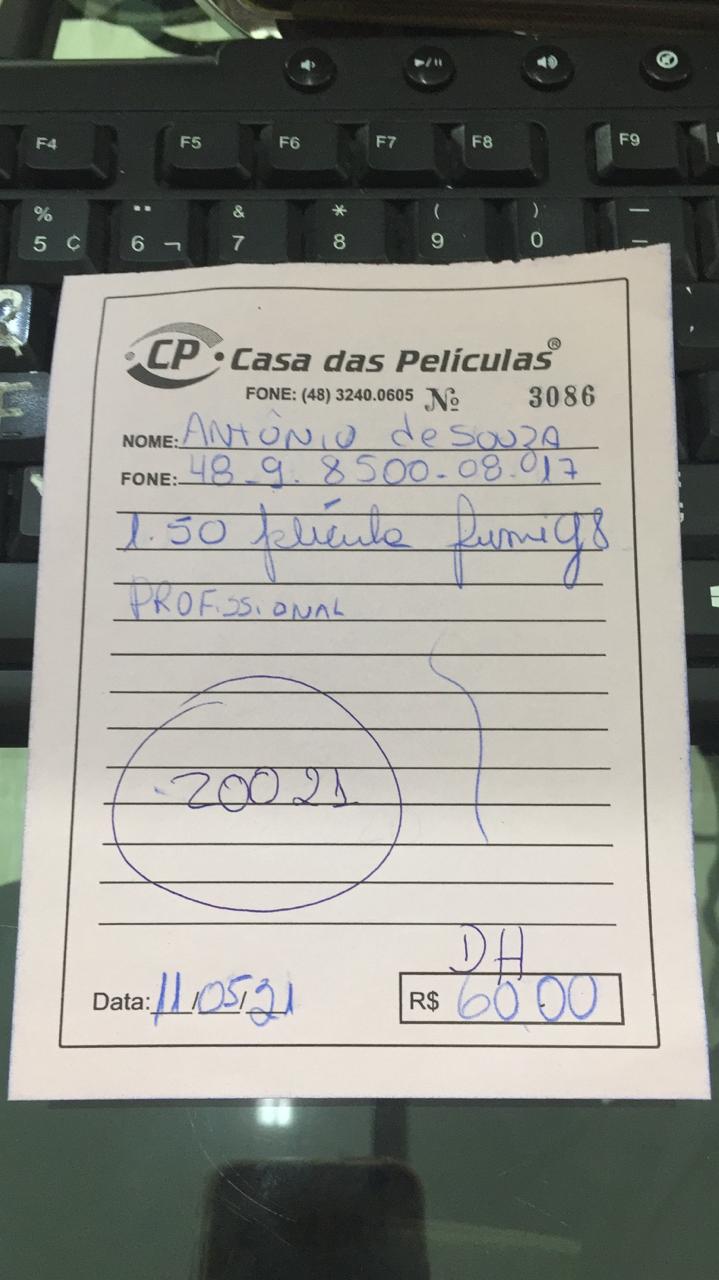 F4 F5 F6 F7 F8 F9
% ¨ & * ( ) —
5 ¢ 6 ¬ 7 8 9 0 –
CP Casa das Películas®
FONE: (48) 3240.0605 Nº 3086
NOME: ANTÔNIO de SOUZA
FONE: 48-9. 8500-08.017
1.50 película fumê G8
PROFISSIONAL
20021
DH
Data: 11/05/21 R$ 60.00